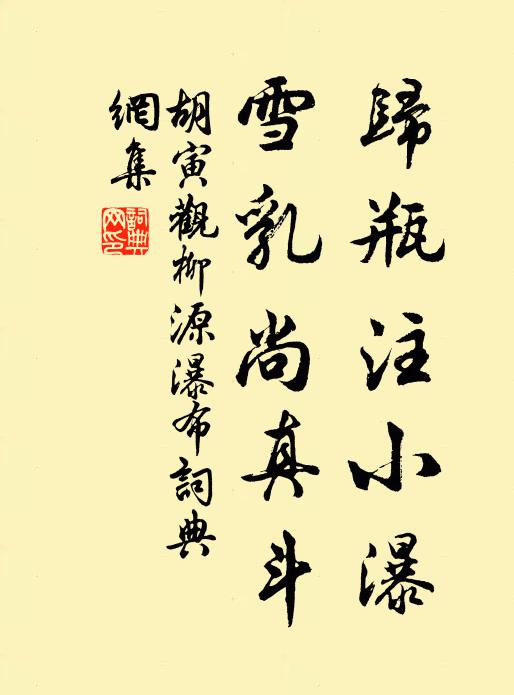 歸瓶注小瀑
雪乳尚真斗
胡寅觀柳源瀑布詞典
網集
詞典
网印